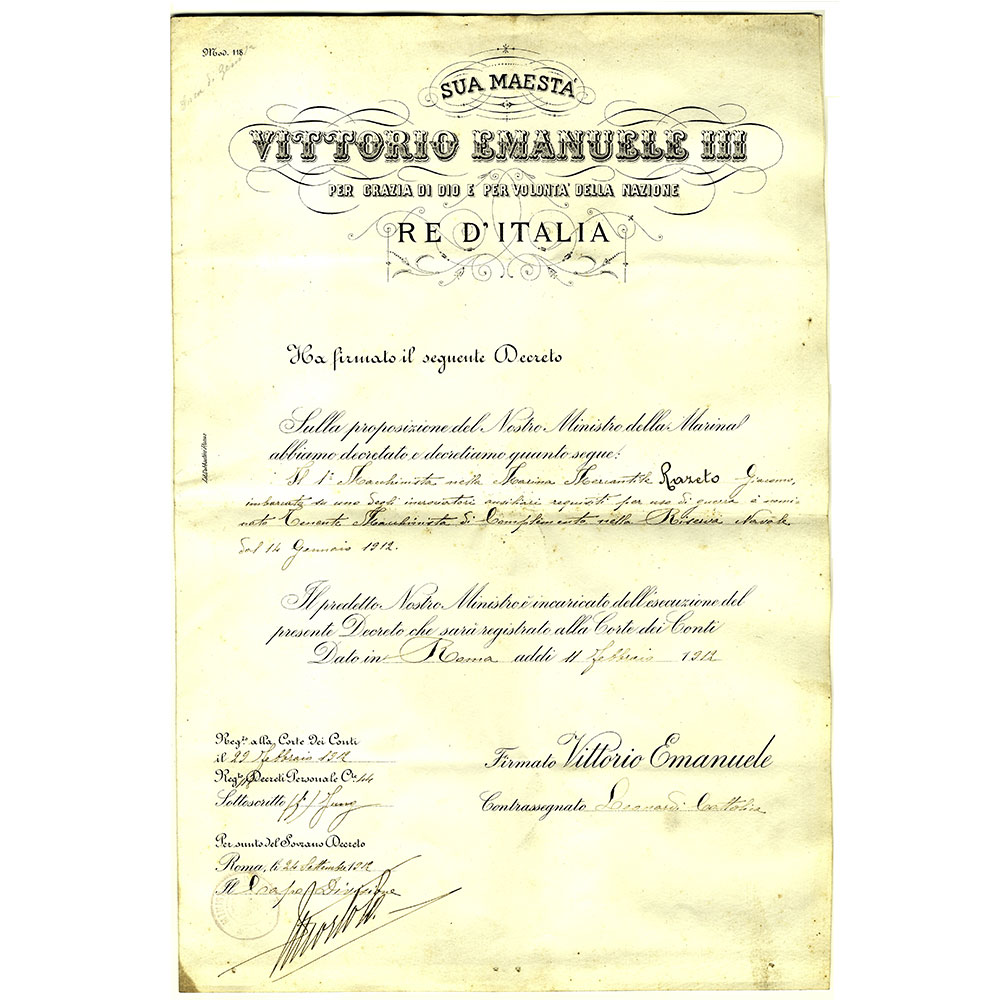 Mod. 118
SUA MAESTÀ
VITTORIO EMANUELE III
PER GRAZIA DI DIO E PER VOLONTA' DELLA NAZIONE
RE D'ITALIA
Ha firmato il seguente Decreto
Sulla proposizione del Nostro Ministro della Marina
abbiamo decretato e decretiamo quanto segue:
Il 1° Macchinista nella Marina Mercantile Razeto Giacomo,
imbarcato su uno degli incrociatori ausiliari requisiti per uso di guerra è nomi-
nato Tenente Macchinista di Complemento nella Riserva Navale
dal 14 Gennaio 1912.
Il predetto Nostro Ministro è incaricato dell'esecuzione del
presente Decreto che sarà registrato alla Corte dei Conti
Dato in Roma addì 11 Febbraio 1912
Reg.to alla Corte dei Conti
il 29 Febbraio 1912
Reg.° Decreti Personale C.te 44
Sottoscritto (f.°) Jung
Firmato Vittorio Emanuele
Contrassegnato Leonardi Cattolica
Per sunto del Sovrano Decreto
Roma, li 24 Settembre 1912
Il Capo Divisione